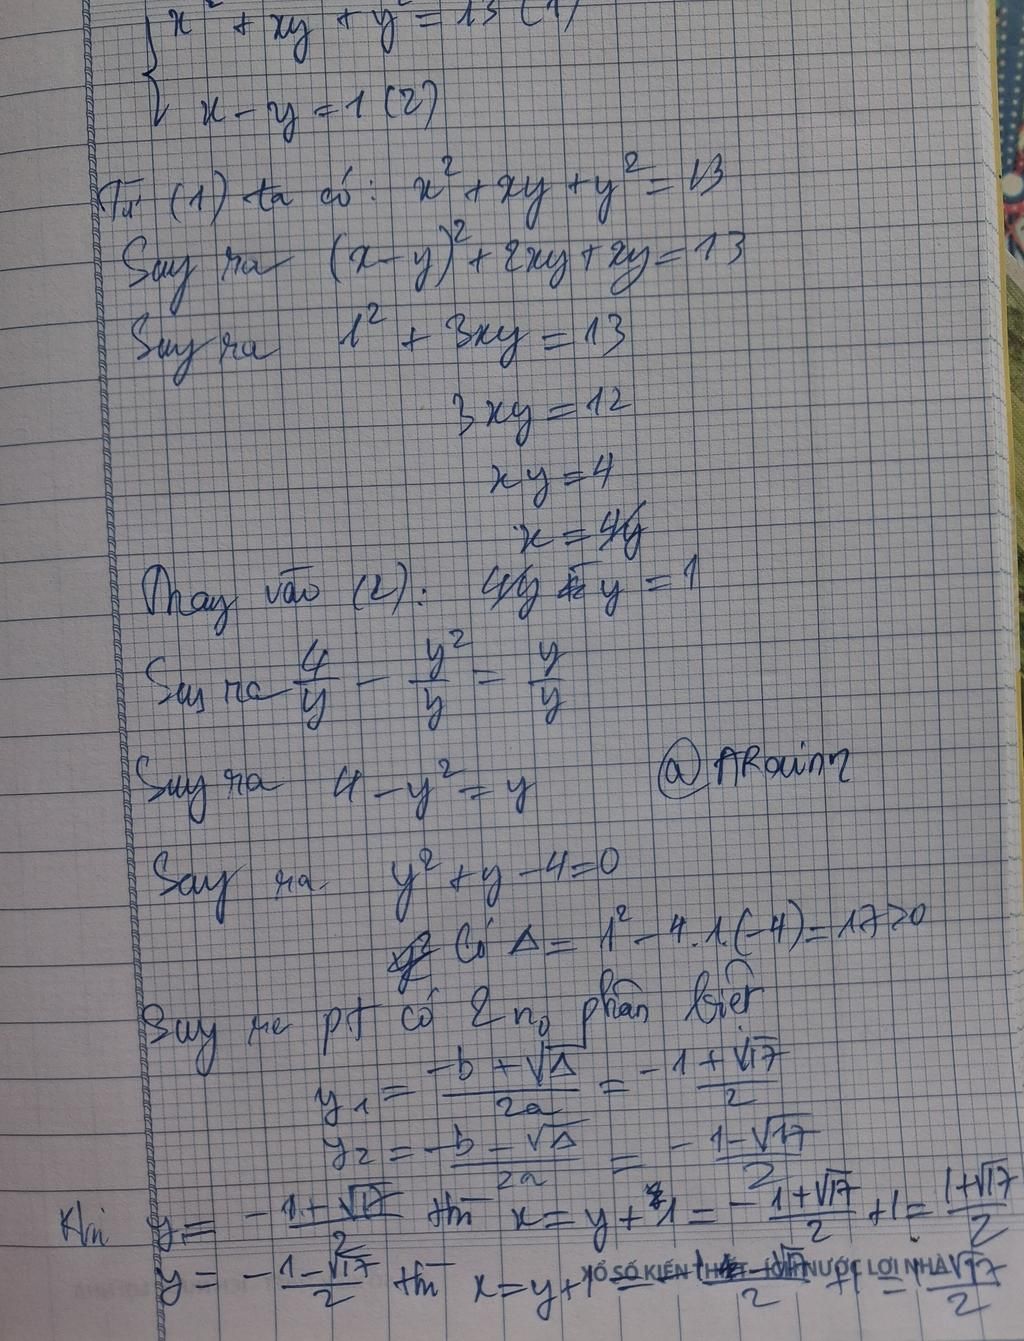 x² + xy + y² = 13 (1)
x - y = 1 (2)
Từ (1) ta có: x² + xy + y² = 13
Suy ra (x - y)² + 2xy + xy = 13
Suy ra 1² + 3xy = 13
3xy = 12
xy = 4
x = 4/y
Thay vào (2): 4/y - y = 1
Suy ra 4/y - y²/y = y/y
Suy ra 4 - y² = y
@ARainn
Suy ra y² + y - 4 = 0
Có Δ = 1² - 4.1.(-4) = 17 > 0
Suy ra pt có 2 n₀ phân biệt
y₁ = (-b + √Δ)/2a = (-1 + √17)/2
y₂ = (-b - √Δ)/2a = (-1 - √17)/2
Khi y = (-1 + √17)/2 thì x = y + 1 = (-1 + √17)/2 + 1 = (1 + √17)/2
y = (-1 - √17)/2 thì x = y + 1 =
XỔ SỐ KIẾN THIẾT - ÍCH NƯỚC LỢI NHÀ